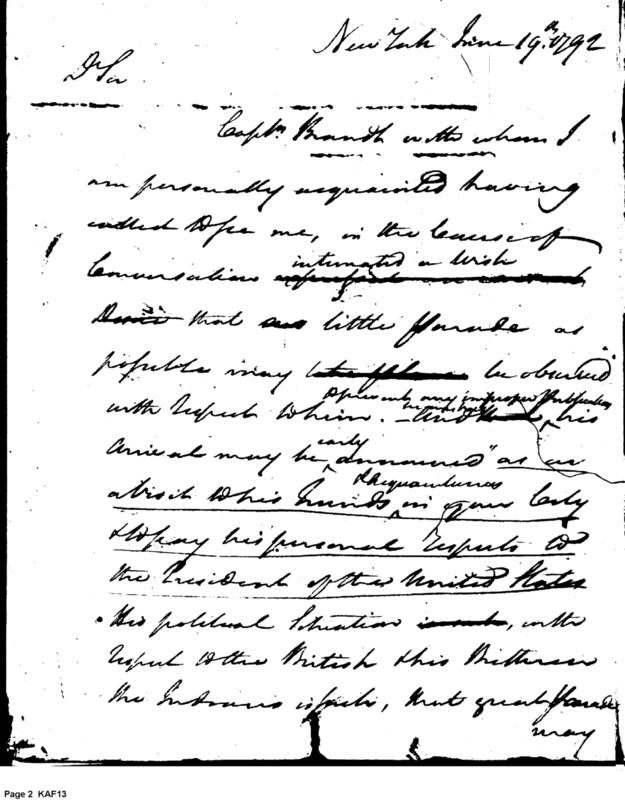 New York June 19th. 1792
Dr Sir
Captn Brandt with whom I
am personally acquainted having
called to see me, in the Course of
intimated a Wish
Conversation
Desire that as little Parade as
possible may be observed
to prevent any improper Publications
with respect to him. — and his
early
Arrival may be announced "as on
& Acquaintances
a Visit to his Friends in your City
& to pay his personal Respects to
the President of the United States
His political Situation, with
respect to the British & his
the Indians is such, that great Parade
may
Page 2 KAF13